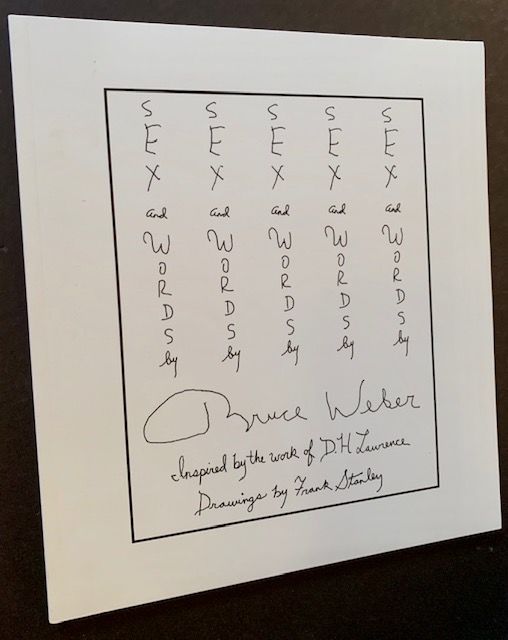 S S S S S
E E E E E
X X X X X
and and and and and
W W W W W
O O O O O
R R R R R
D D D D D
S S S S S
by by by by by
Bruce Weber
Inspired by the work of D.H Lawrence
Drawings by Frank Stanley